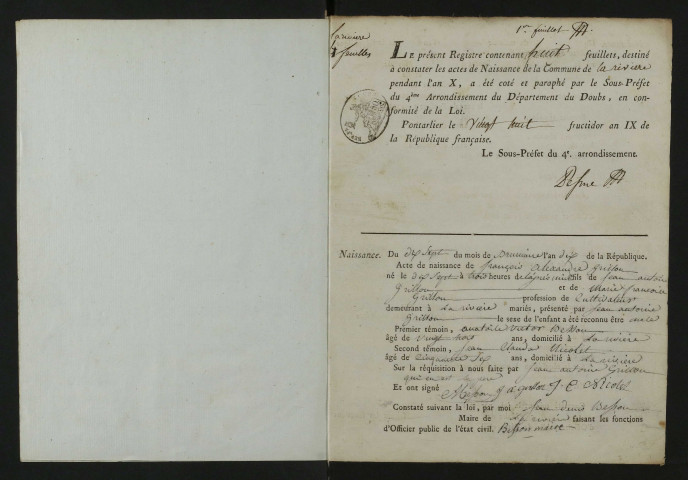 1er feuillet
La rivière
feuilles
LE présent Registre contenant huit feuillets, destiné
à constater les actes de Naissance de la Commune de La rivière
pendant l'an X, a été coté et paraphé par le Sous-Préfet
du 4ème Arrondissement du Département du Doubs, en con-
formité de la Loi.
Pontarlier le Vingt huit fructidor an IX de
la République française.
Le Sous-Préfet du 4e. arrondissement.
Naissance. Du dix Sept du mois de Brumaire l'an dix de la République.
Acte de naissance de françois Alexandre Grillon
né le dix Sept à trois heures de légitimes de Jean antoine
Grillon et de Marie françoise
Grillon profession de Cultivateur
demeurant à La rivière mariés, présenté par Jean antoine
Grillon le sexe de l'enfant a été reconnu être male
Premier témoin, anatoile Victor Besson
âgé de vingt trois ans, domicilié à La rivière
Second témoin, Jean Claude Nicolet
âgé de Cinquante Six ans, domicilié à La rivière
Sur la réquisition à nous faite par Jean antoine Grillon
qui en est le père
Et ont signé J C Nicolet
Constaté suivant la loi, par moi Jean Denis Besson
Maire de La rivière faisant les fonctions
d'Officier public de l'état civil. Besson maire